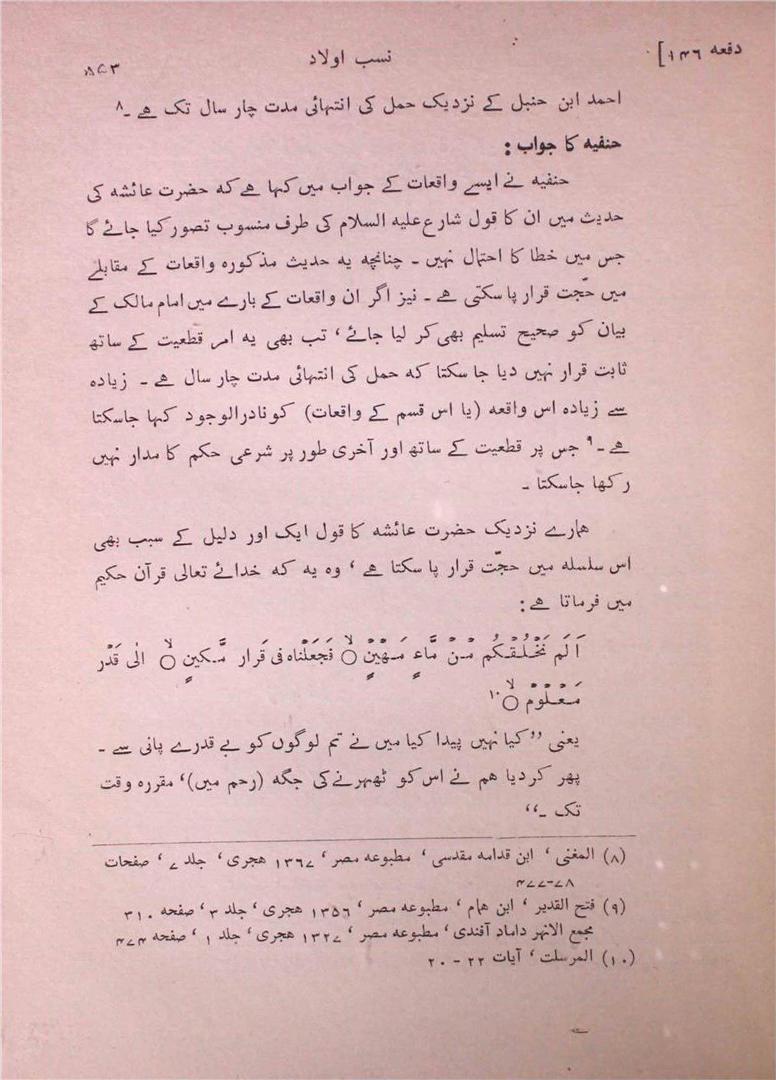 دفعه ۱۴۶] نسب اولاد ۸۵۳
احمد ابن حنبل کے نزدیک حمل کی انتہائی مدت چار سال تک ھے ۔۸
حنفیه کا جواب :
حنفیه نے ایسے واقعات کے جواب میں کہا ھے که حضرت عائشه کی
حدیث میں ان کا قول شارع علیه السلام کی طرف منسوب تصور کیا جائے گا
جس میں خطا کا احتمال نہیں ۔ چنانچه یه حدیث مذکورہ واقعات کے مقابلے
میں حجّت قرار پا سکتی ھے ۔ نیز اگر ان واقعات کے بارے میں امام مالک کے
بیان کو صحیح تسلیم بھی کر لیا جائے ، تب بھی یه امر قطعیت کے ساتھ
ثابت قرار نہیں دیا جا سکتا که حمل کی انتہائی مدت چار سال ھے ۔ زیادہ
سے زیادہ اس واقعه (یا اس قسم کے واقعات) کو نادرالوجود کہا جاسکتا
ھے ۔۹ جس پر قطعیت کے ساتھ اور آخری طور پر شرعی حکم کا مدار نہیں
رکھا جاسکتا ۔
ھمارے نزدیک حضرت عائشه کا قول ایک اور دلیل کے سبب بھی
اس سلسله میں حجّت قرار پا سکتا ھے ، وہ یه که خدائے تعالی قرآن حکیم
میں فرماتا ھے :
اَلَم نَخْلُقْکُم مِنْ مَّاءٍ مَهِیْنٍ ○ۙ فَجَعَلْنَاه فی قَرار مَّکینٍ ○ۙ الٰی قَدَر
مَعْلُوْمٍ ○ۙ ۱۰
یعنی ’’کیا نہیں پیدا کیا میں نے تم لوگوں کو بے قدرے پانی سے ۔
پھر کر دیا ھم نے اس کو ٹھہرنے کی جگه (رحم میں)، مقررہ وقت
تک ۔‘‘
(۸) المغنی ، ابن قدامه مقدسی ، مطبوعه مصر ، ۱۳۶۷ ھجری ، جلد ۷ ، صفحات
۴۷۷-۷۸
(۹) فتح القدیر ، ابن ھمام ، مطبوعه مصر ، ۱۳۵۶ ھجری ، جلد ۳ ، صفحه ۳۱۰
مجمع الانہر داماد آفندی ، مطبوعه مصر ، ۱۳۲۷ ھجری ، جلد ۱ ، صفحه ۴۷۴
(۱۰) المرسلت ، آیات ۲۲ - ۲۰